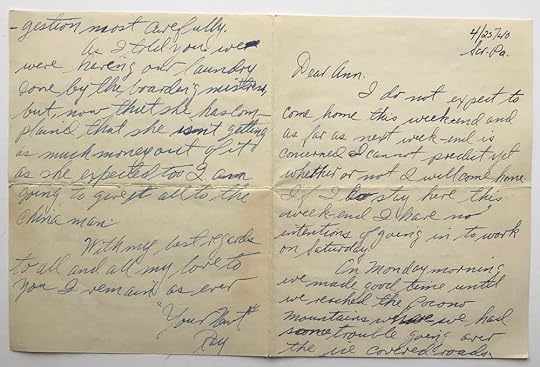 4/25/40
Scr. Pa.
Dear Ann.
I do not expect to
come home this week-end and
as far as next week-end is
concerned I cannot predict yet
whether or not I will come home.
If I do stay here this
week end I have no
intentions of going in to work
on Saturday.
On Monday morning
we made good time until
we reached the Pocono
mountains where we had
some trouble going over
the ice covered roads.
-gestion most carefully.
As I told you we
were having our laundry
done by the boarding mistress,
but, now that she has com-
plained that she isn't getting
as much money out of it
as she expected too I am
going to give it all to the
china man.
With my best regards
to all and all my love to
you I remain as ever
"Your
Ray